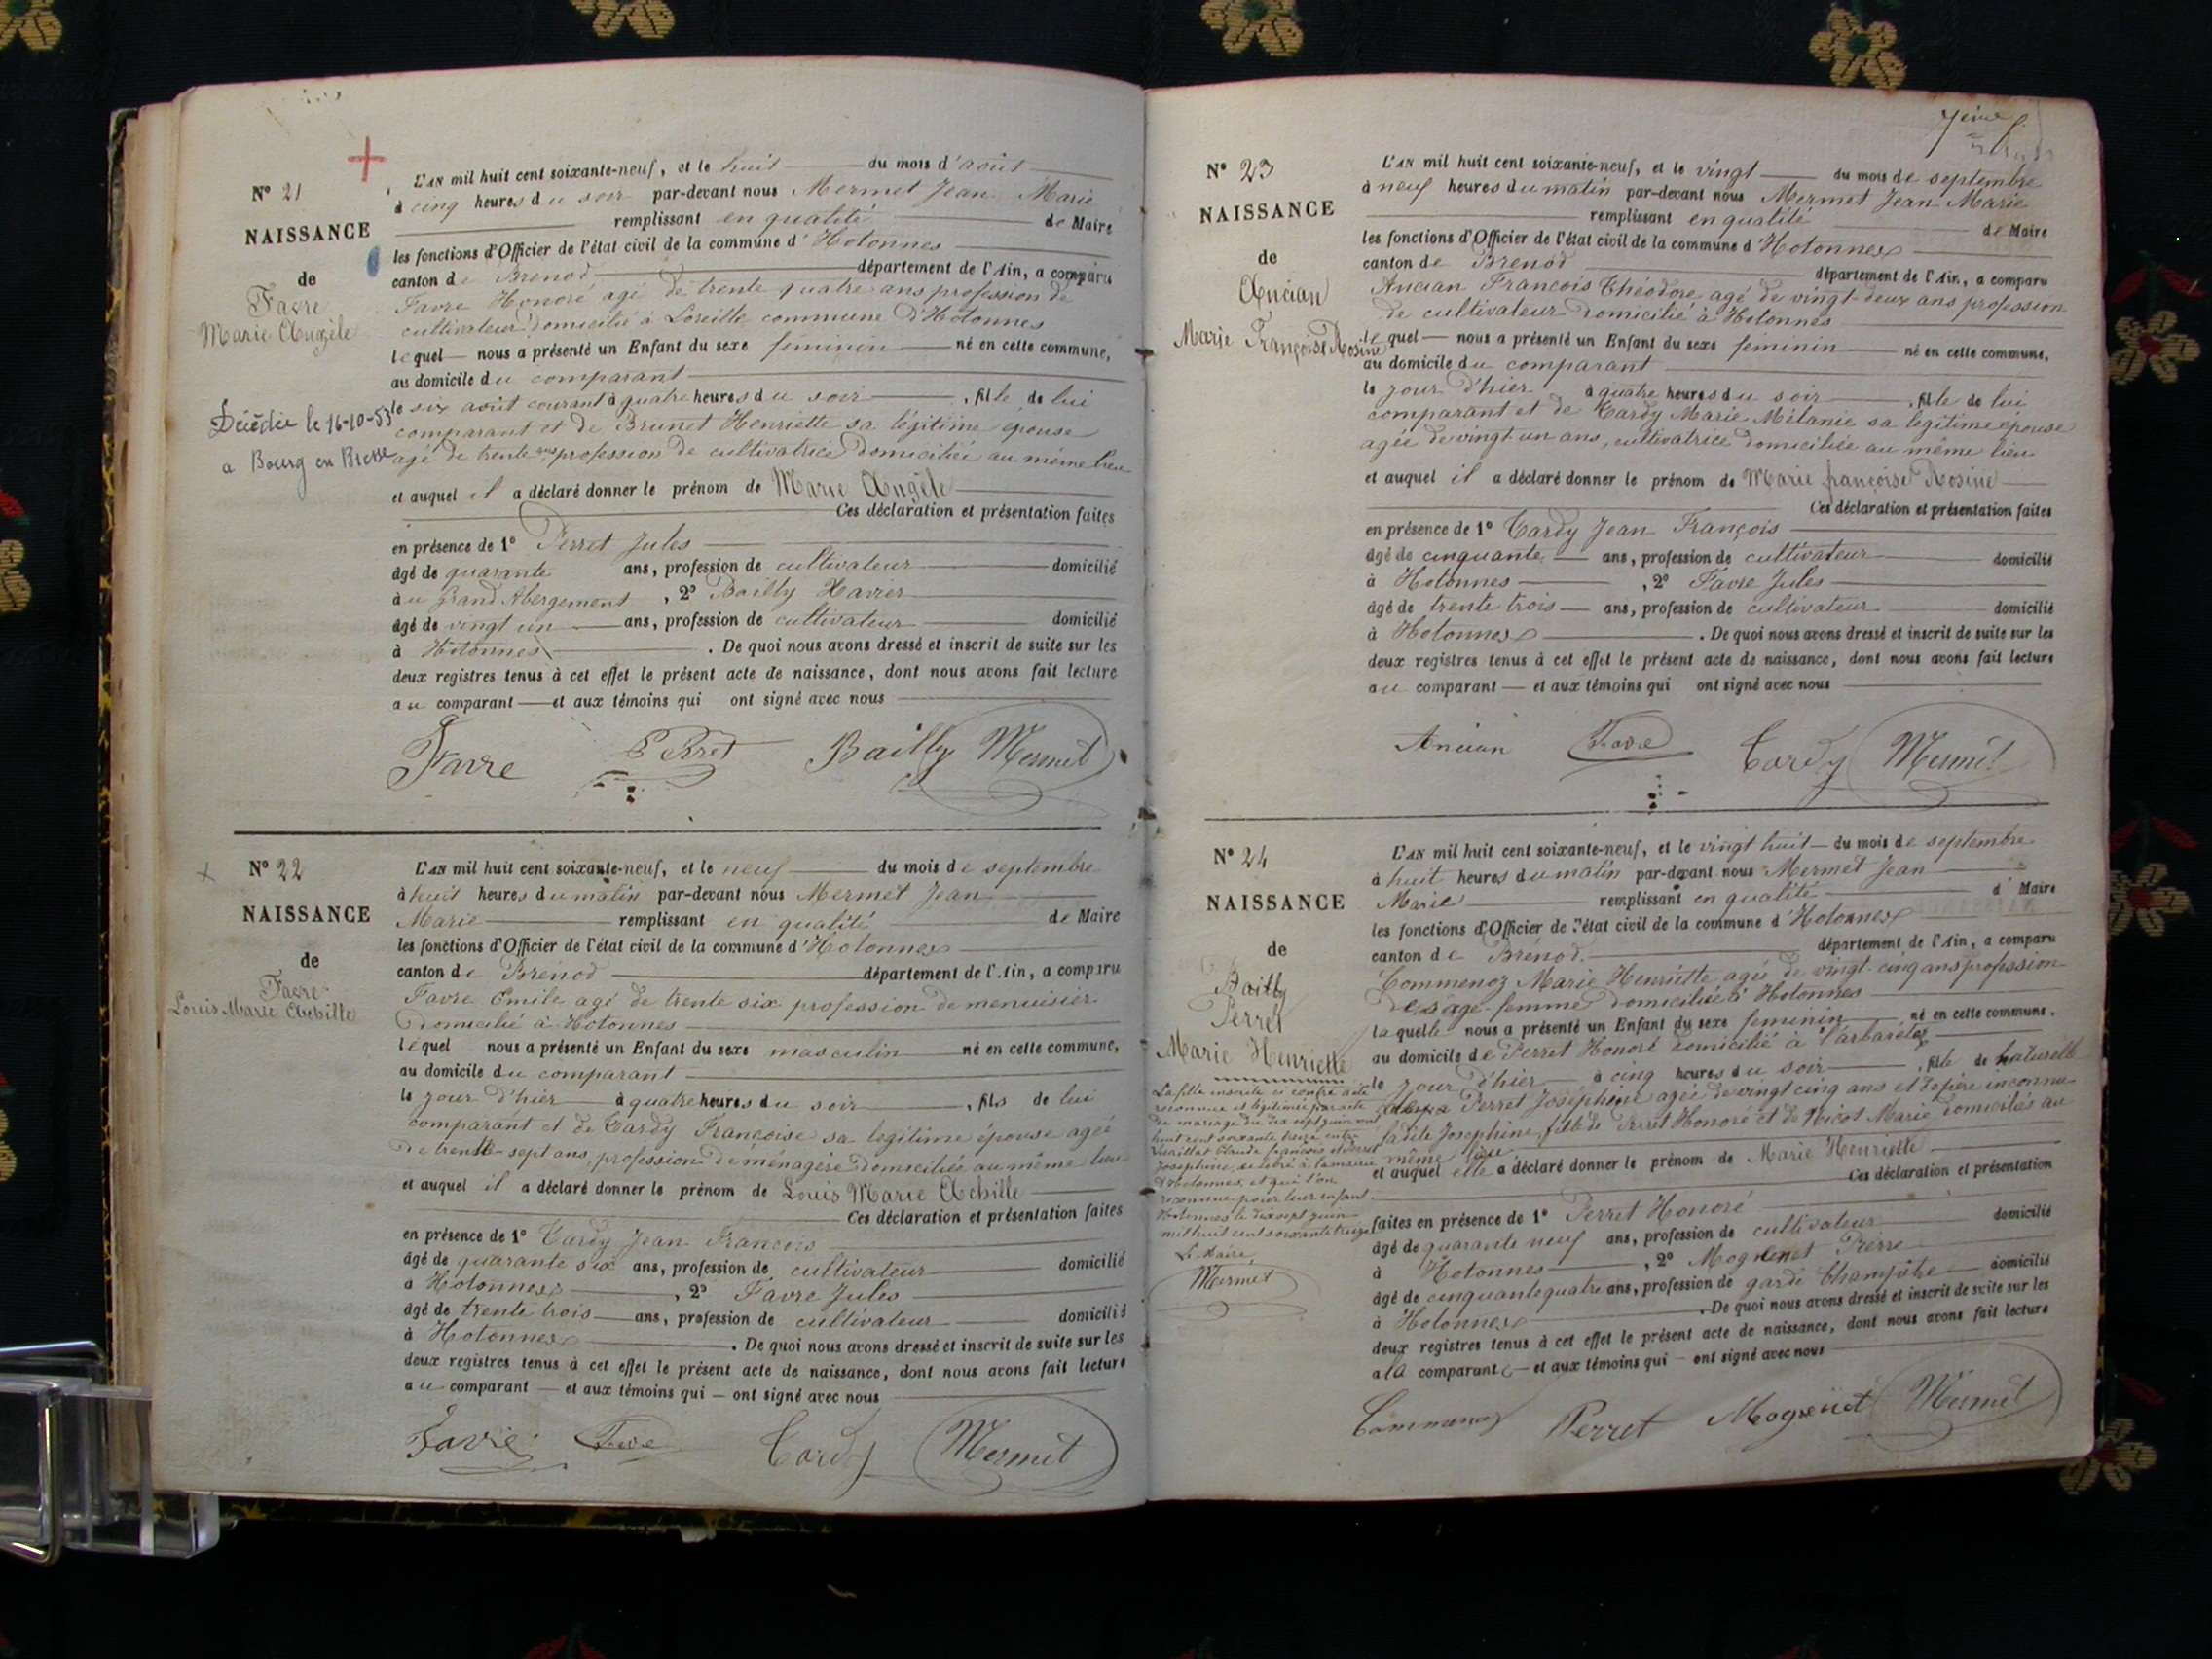 N° 21
NAISSANCE
de
Favre
Marie Angèle
Décédée le 16-10-53
a Bourg en Bresse
L'AN mil huit cent soixante-neuf, et le huit du mois d'août
à cinq heures du soir par-devant nous Mermet Jean Marie
remplissant en qualité de Maire
les fonctions d'Officier de l'état civil de la commune d'Hotonnes
canton de Brenod département de l'Ain, a comparu
Favre Honoré agé de trente quatre ans profession de
cultivateur domicilié à commune d'Hotonnes
lequel nous a présenté un Enfant du sexe feminin né en cette commune,
au domicile du comparant
le six août courant à quatre heures du soir, fille de lui
comparant et de Brunet Henriette sa légitime épouse
agé de trente ans profession de cultivatrice domiciliée au même lieu
et auquel il a déclaré donner le prénom de Marie Angèle
Ces déclaration et présentation faites
en présence de 1° Perret Jules
âgé de quarante ans, profession de cultivateur domicilié
au Grand Abergement, 2° Bailly Xavier
âgé de vingt un ans, profession de cultivateur domicilié
à Hotonnes. De quoi nous avons dressé et inscrit de suite sur les
deux registres tenus à cet effet le présent acte de naissance, dont nous avons fait lecture
au comparant et aux témoins qui ont signé avec nous
Favre Bailly Mermet
N° 22
NAISSANCE
de
Favre
Louis Marie Achille
L'AN mil huit cent soixante-neuf, et le neuf du mois de septembre
à huit heures du matin par-devant nous Mermet Jean
Marie remplissant en qualité de Maire
les fonctions d'Officier de l'état civil de la commune d'Hotonnes
canton de Brénod département de l'Ain, a comparu
Favre Emile agé de trente six profession de menuisier
domicilié à Hotonnes
lequel nous a présenté un Enfant du sexe masculin né en cette commune,
au domicile du comparant
le jour d'hier à quatre heures du soir, fils de lui
comparant et de Tardy Françoise sa legitime épouse agée
de trente-sept ans, profession de ménagère domiciliés au même lieu
et auquel il a déclaré donner le prénom de Louis Marie Achille
Ces déclaration et présentation faites
en présence de 1° Tardy Jean François
âgé de quarante six ans, profession de cultivateur domicilié
à Hotonnes, 2° Favre Jules
âgé de trente trois ans, profession de cultivateur domicilié
à Hotonnes. De quoi nous avons dressé et inscrit de suite sur les
deux registres tenus à cet effet le présent acte de naissance, dont nous avons fait lecture
au comparant et aux témoins qui ont signé avec nous
Favre Favre Tardy Mermet
N° 23
NAISSANCE
de
Ancian
Marie Françoise Rosine
L'AN mil huit cent soixante-neuf, et le vingt du mois de septembre
à neuf heures du matin par-devant nous Mermet Jean Marie
remplissant en qualité de Maire
les fonctions d'Officier de l'état civil de la commune d'Hotonnes
canton de Brenod département de l'Ain, a comparu
Ancian François Théodore agé de vingt-deux ans profession
de cultivateur domicilié à Hotonnes
lequel nous a présenté un Enfant du sexe feminin né en cette commune,
au domicile du comparant
le jour d'hier à quatre heures du soir, fille de lui
comparant et de Tardy Marie Mélanie sa légitime épouse
agée de vingt-un ans, cultivatrice domiciliée au même lieu
et auquel il a déclaré donner le prénom de Marie françoise Rosine
Ces déclaration et présentation faites
en présence de 1° Tardy Jean François
âgé de cinquante ans, profession de cultivateur domicilié
à Hotonnes, 2° Favre Jules
âgé de trente trois ans, profession de cultivateur domicilié
à Hotonnes. De quoi nous avons dressé et inscrit de suite sur les
deux registres tenus à cet effet le présent acte de naissance, dont nous avons fait lecture
au comparant et aux témoins qui ont signé avec nous
Ancian Favre Tardy Mermet
N° 24
NAISSANCE
de
Bailly
Perret
Marie Henriette
La fille inscrite ci contre a été
reconnue et légitimée par acte
de mariage du dix sept juin mil
huit cent soixante treize entre
Claude françois et Perret
Josephine, célébré à la mairie
d'Hotonnes, et qui l'on
reconnue pour leur enfant.
Hotonnes le dix sept juin
mil huit cent soixante treize
Le Maire,
Mermet
L'AN mil huit cent soixante-neuf, et le vingt huit du mois de septembre
à huit heures du matin par-devant nous Mermet Jean
Marie remplissant en qualité d' Maire
les fonctions d'Officier de l'état civil de la commune d'Hotonnes
canton de Brénod département de l'Ain, a comparu
Commenoz Marie Henriette agée de vingt-cinq ans profession
de sage-femme domiciliée à Hotonnes
laquelle nous a présenté un Enfant du sexe feminin né en cette commune,
au domicile de Perret Honoré domicilié à
le jour d'hier à cinq heures du soir, fille de naturelle
Perret Joséphine agée de vingt cinq ans et de père inconnu
ladite Josephine, fille de Perret Honoré et de Nicot Marie domiciliés au
même lieu
et auquel elle a déclaré donner le prénom de Marie Henriette
Ces déclaration et présentation
faites en présence de 1° Perret Honoré
âgé de quarante neuf ans, profession de cultivateur domicilié
à Hotonnes, 2° Mognenet Pierre
âgé de cinquante quatre ans, profession de garde champêtre domicilié
à Hotonnes. De quoi nous avons dressé et inscrit de suite sur les
deux registres tenus à cet effet le présent acte de naissance, dont nous avons fait lecture
a la comparante et aux témoins qui ont signé avec nous
Commenoz Perret Mognenet Mermet